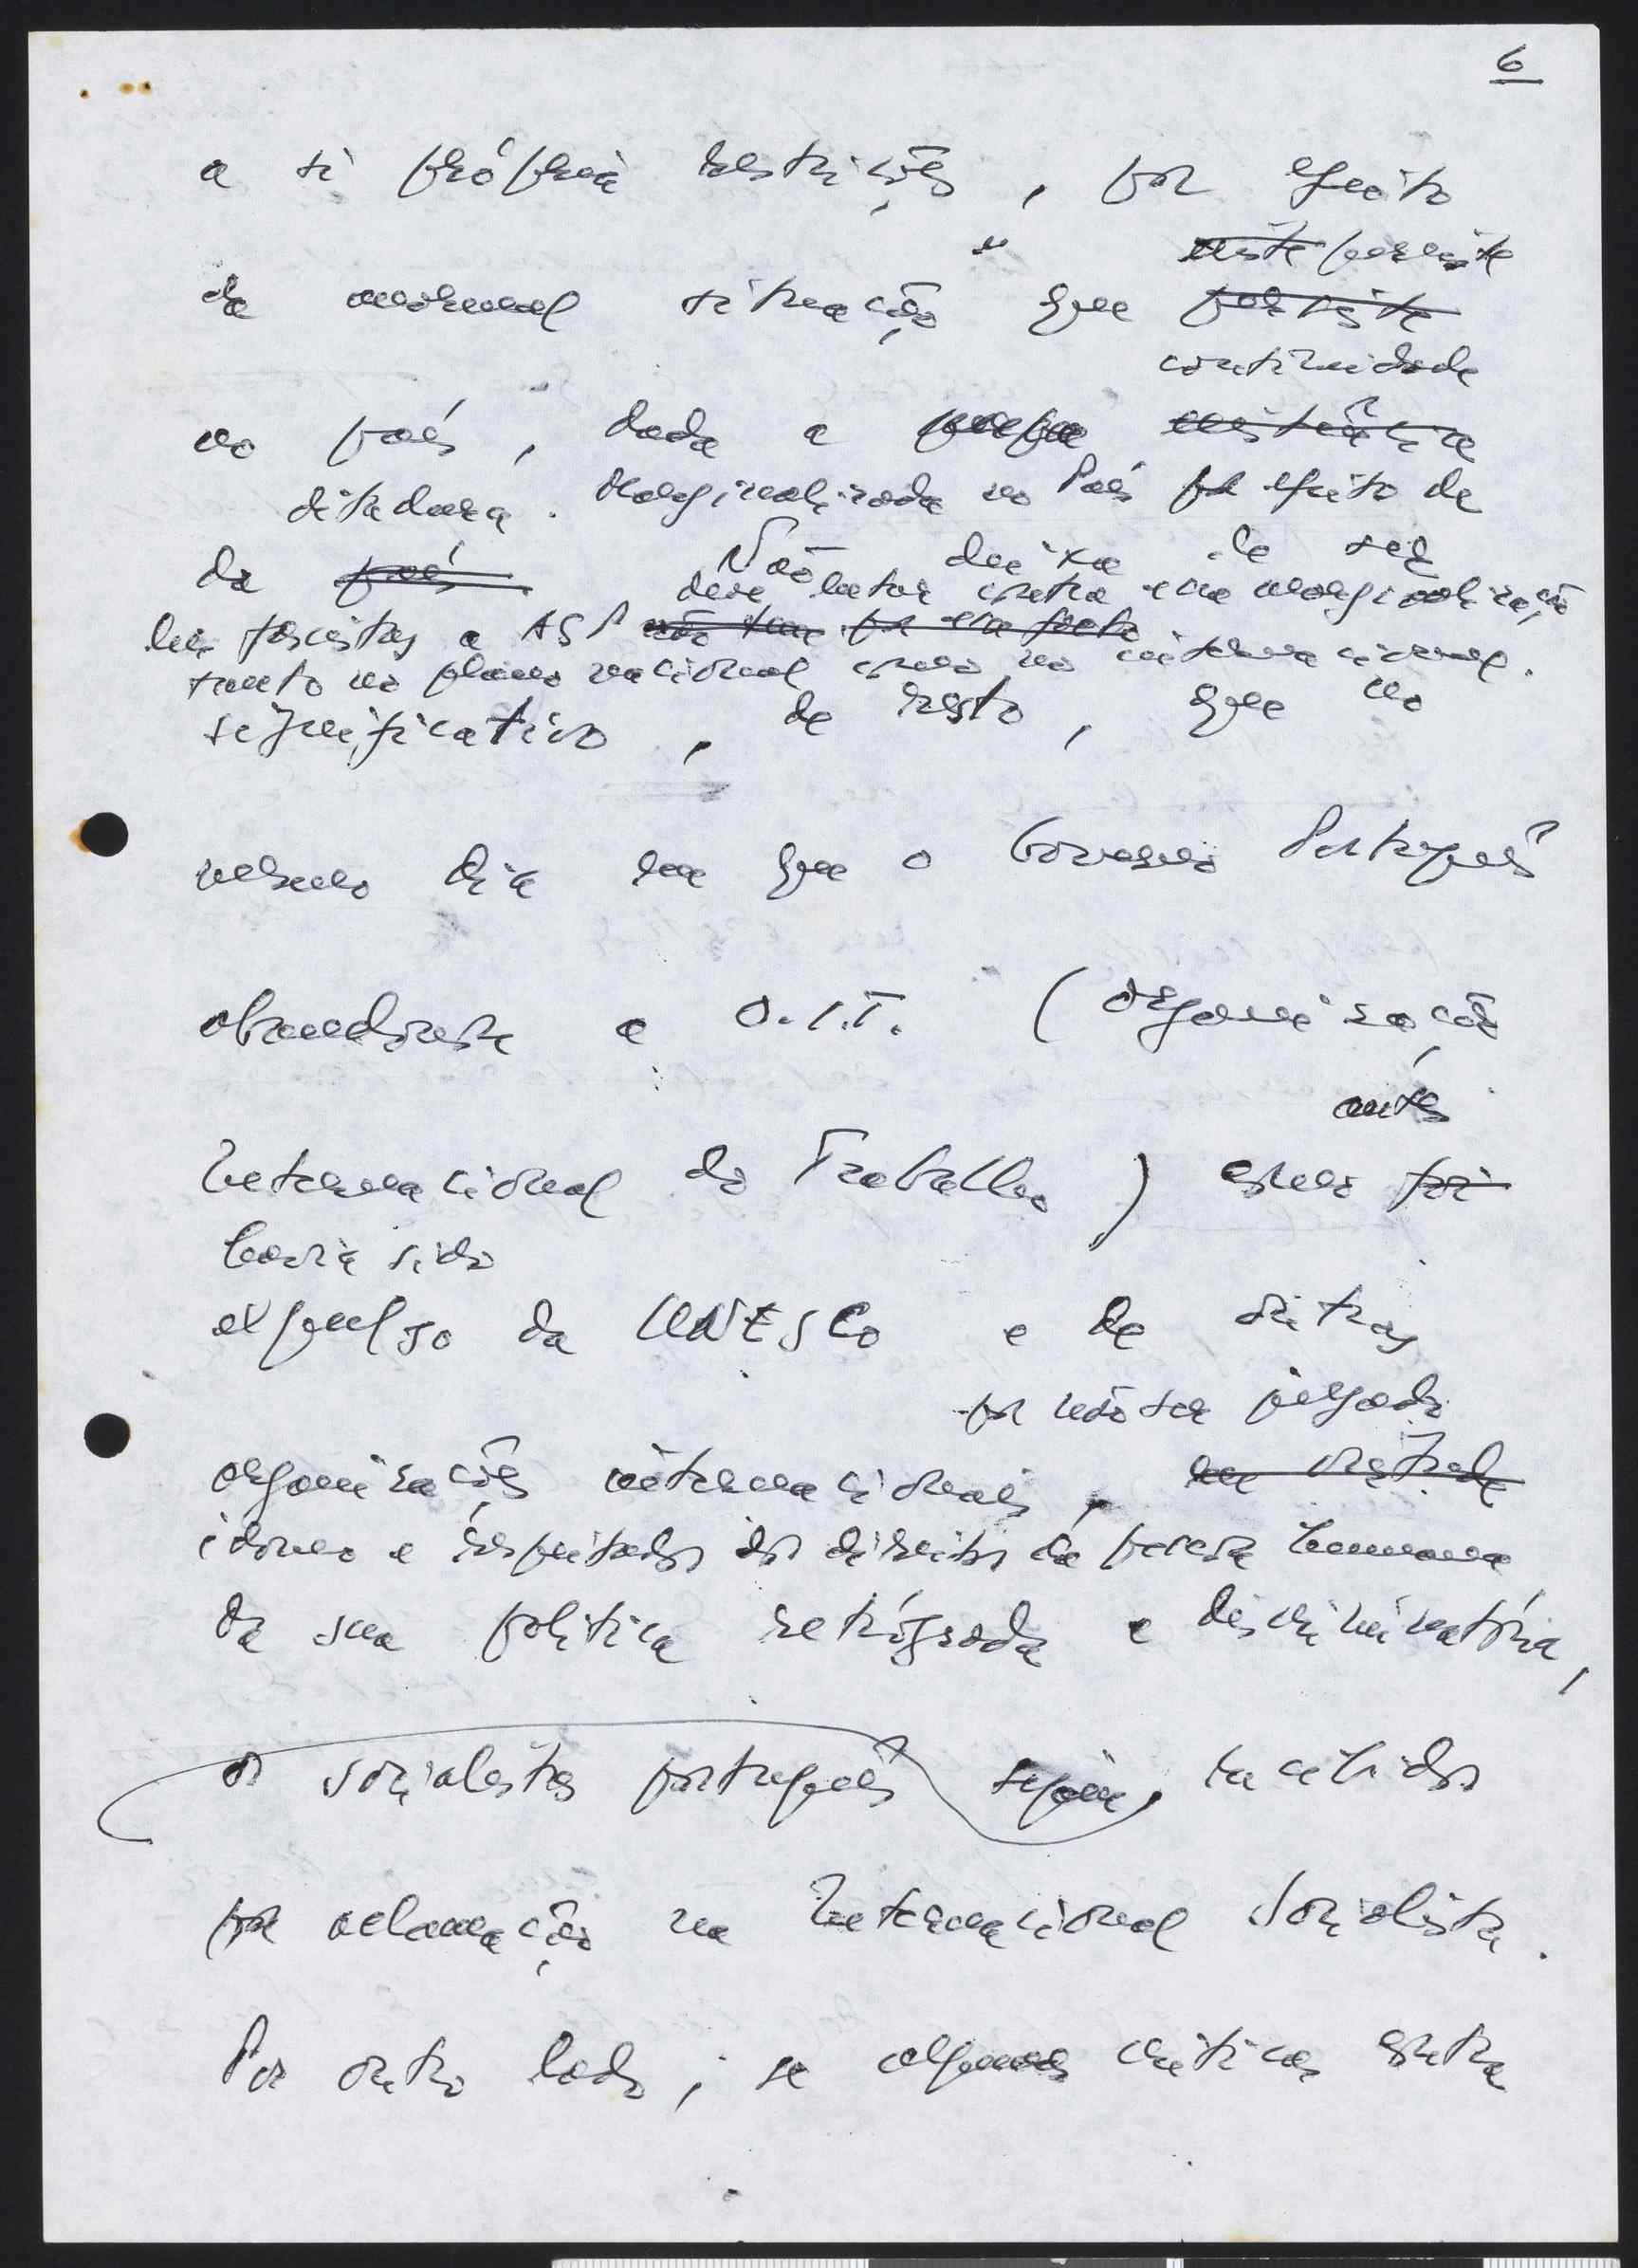 6
a si própria restrições, por efeito
existe persiste
da anormal situação que persiste
continuidade
no país, dada a existência
ditadura. Marginalizada no País por efeito de
da país Não deixa de ser
deve lutar contra essa marginalização
leis fascistas a ASP não tem por essa
tanto no plano nacional como no internacional.
significativo, de resto, que no
mesmo dia em que o Governo Português
abandonava a O.I.T. (Organização
antes
Internacional do Trabalho) como foi
havia sido
expulso da UNESCO e de outras
por não ser julgado
organizações internacionais, em virtude
idóneo e respeitador dos direitos da pessoa humana
da sua política retrógrada e discriminatória,
os socialistas portugueses sejam recebidos
por aclamação na Internacional Socialista.
Por outro lado, se algumas críticas contra